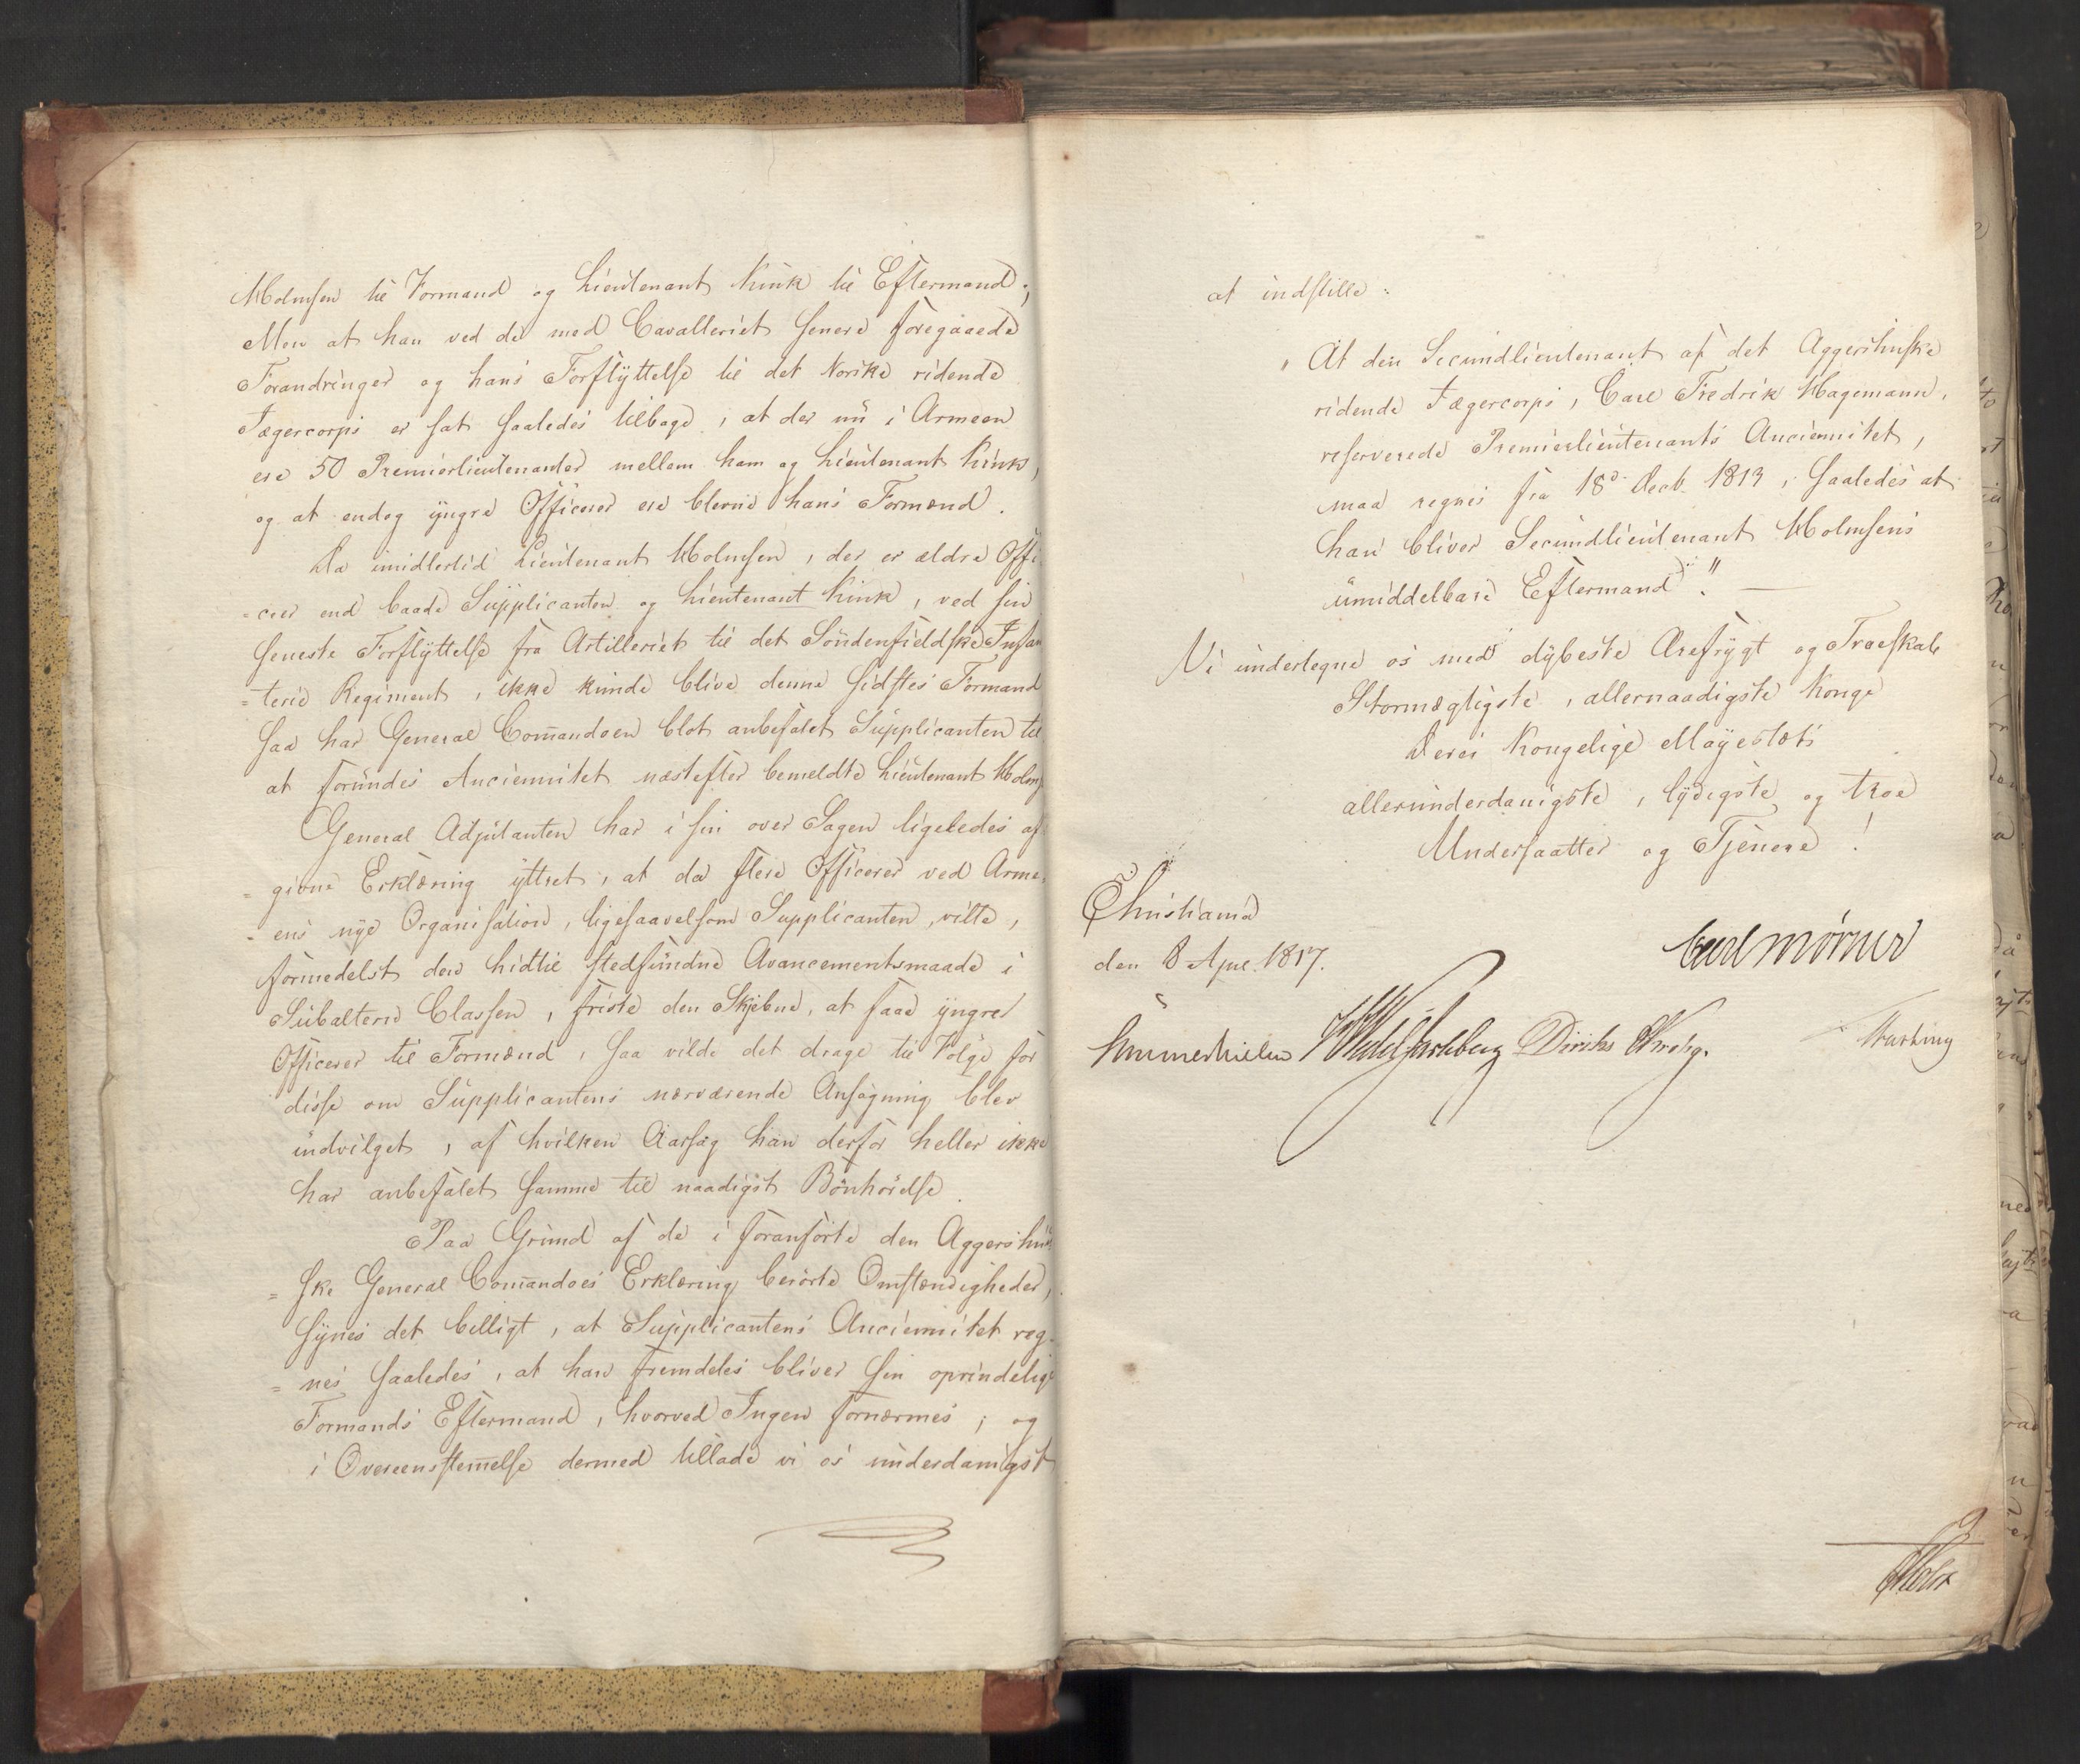 Holmsen til Formand og Lieutenant Kink til Eftermand;
Men at han ved de med Cavalleriet senere foregaaede
Forandringer og hans Forflyttelse til det Norske ridende
Jægercorps er sat saaledes tilbage, at der nu i Armeen
ere 50 Premierlieutenanter mellem ham og Lieutenant Kink,
og at endog yngre Officerer ere blevne hans Formænd.
Da imidlertid Lieutenant Holmsen, der er ældre Offi
=cer end baade Supplicanten og Lieutenant Kink, ved sin
seneste Forflyttelse fra Artilleriet til det Søndenfieldske Infan
=terie Regiment, ikke kunde blive denne sidstes Formand
saa har General Com̄andoen blot anbefalet Supplicanten til
at forundes Anciennitet næstefter bemeldte Lieutenant Holms
General Adjutanten har i sin over Sagen ligeledes af
=givne Erklæring yttret, at da flere Officerer ved Arme
=ens nye Organisation, ligesaavelsom Supplicanten, vilte,
formedelst den hidtil stedfundne Avancementsmaade i
Subalterne Classen, friste den Skjebne, at faae yngre
Officerer til Formænd, saa vilde det drage til Følge for
disse om Supplicantens nærværende Ansøgning blev
indvilget, af hvilken Aarsag han derfor heller ikke
har anbefalet samme til naadigst Bønhørelse.
Paa Grund af de i foranførte den Aggershuu
=ske General Com̄andoes Erklæring berørte Omstændigheder,
synes det billigt, at Supplicantens Anciennitet reg
=nes saaledes, at han fremdeles bliver sin oprindelige
Formands Eftermand, hvorved Ingen fornærmes; og
i Overeenstem̄else dermed tillade vi os underdanigst
at indstille:
"At den Secundlieutenant af det Aggershuske
ridende Jægercorps, Carl Fredrik Hagemann,
reserverede Premierlieutenants Anciennitet,
maa regnes fra 18d. Decb. 1813, saaledes at
han bliver Secundlieutenant Holmsens
umiddelbare Eftermand". —
Vi undertegne os med dybeste Ærefrygt og Troeskab
Stormægtigste, allernaadigste Konge
Deres Kongelige Mayestæts
allerunderdanigste, lydigste og troe
Undersaatter og Tjenere!
Christiania
den 8 Apr. 1817.
Carl Mörner
Hummerhielm Wedel Jarlsberg Diriks Krohg.